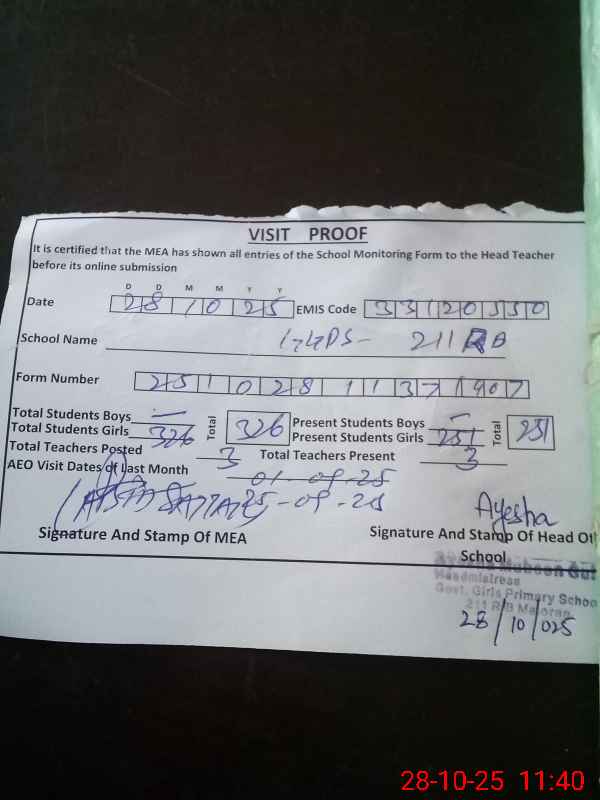 VISIT PROOF
It is certified that the MEA has shown all entries of the School Monitoring Form to the Head Teacher
before its online submission
D D M M Y Y
Date 28 10 25 EMIS Code 33120550
School Name GGPS- 211 RB
Form Number 251028 1137 1907
Total Students Boys — Total 326 Present Students Boys — Total 251
Total Students Girls 326 Present Students Girls 251
Total Teachers Posted 3 Total Teachers Present 3
AEO Visit Dates of Last Month 01-09-25
25-09-25
Ayesha
Signature And Stamp Of MEA Signature And Stamp Of Head Of
School
Headmistress
Govt. Girls Primary Schoo
211 R/B
28/10/025
28-10-25 11:40